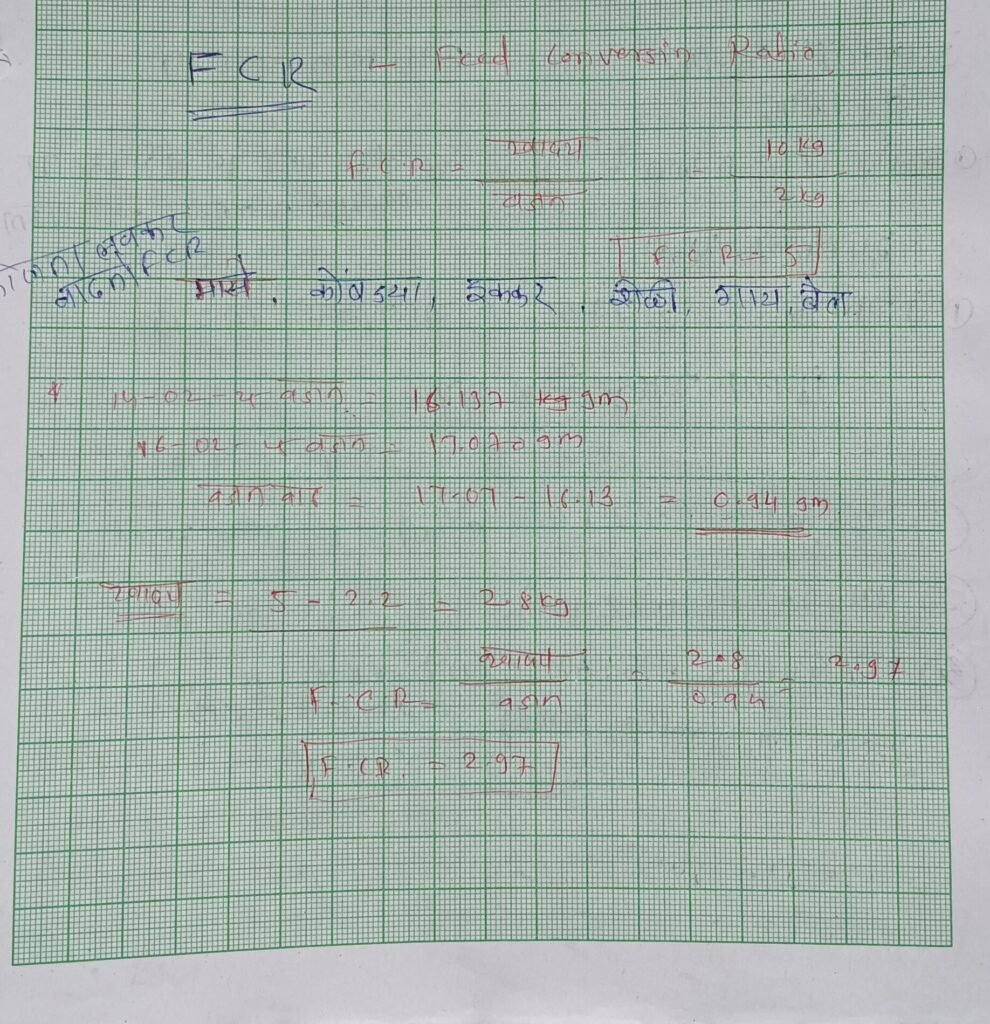 FCR - Feed Conversin Ratio
F.C.R = खादय / वजन = 10 kg / 2 kg
F.C.R = 5
लवकर
वाढतो FCR
मासे, कोंबडया, डुक्कर, शेळी, गाय, बैल.
14-02-24 वजन = 16.137 gm
16-02-24 वजन = 17.070 gm
वजन वाढ = 17.07 - 16.13 = 0.94 gm
खादय = 5 - 2.2 = 2.8 kg
F.C.R = खादय / वजन = 2.8 / 0.94 = 2.97
F.CR. = 2.97